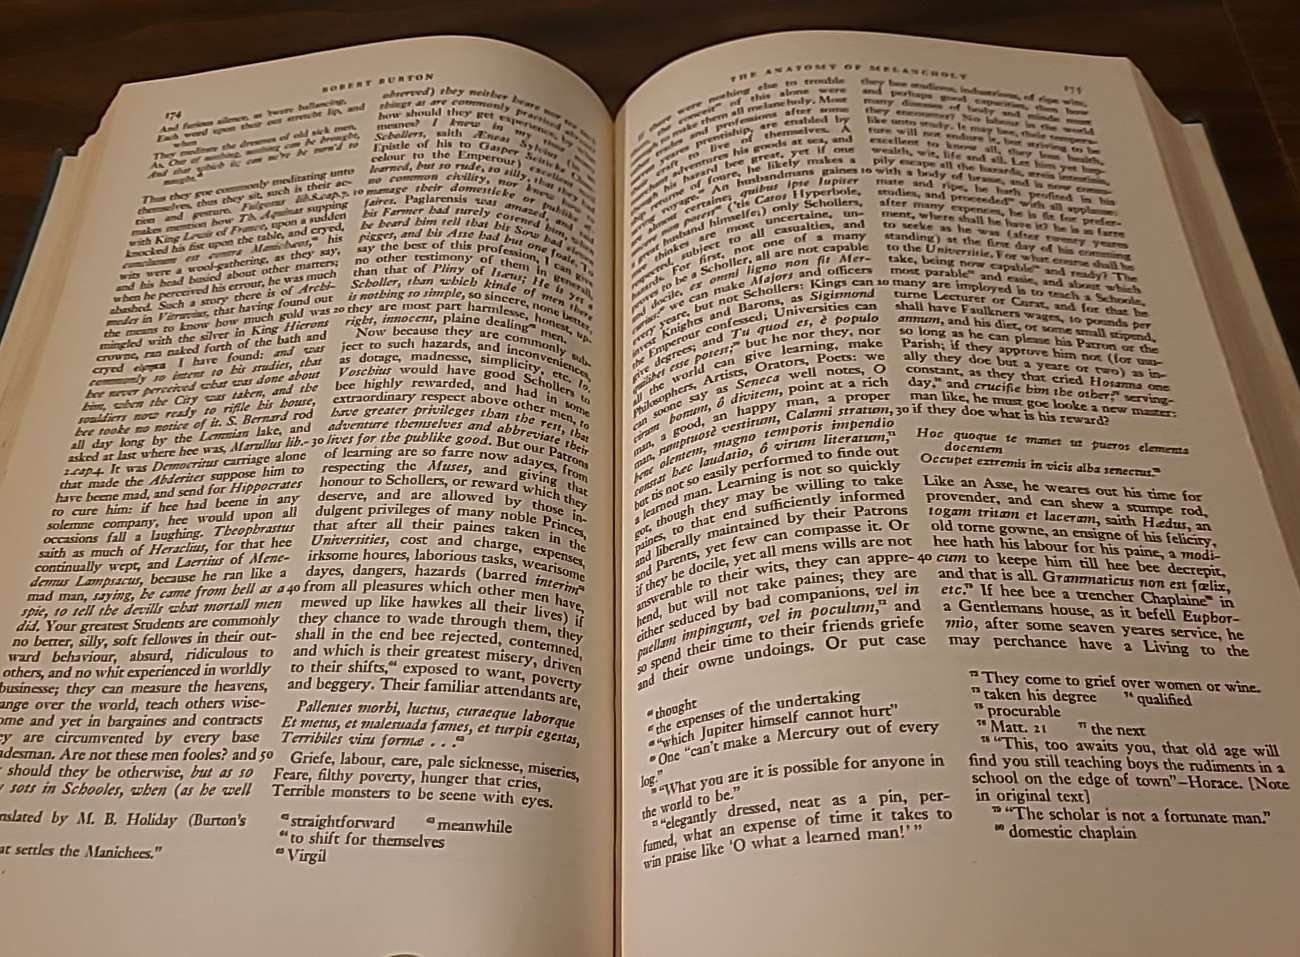 ROBERT BURTON
174
And furious silence, as 'twere ballancing,
Each word upon their out stretcht lip, and
when
They meditate the dreames of old sick men,
As, Out of nothing, nothing can be brought,
And that which is, can ne're be turn'd to
nought.
Thus they goe commonly meditating unto
themselves, thus they sit, such is their ac-
tion and gesture. Fulgosus
makes mention how Th. Aquinas supping
with King Lewis of France, upon a sudden
knocked his fist upon the table, and cryed,
conclusum est contra Manichaeos, his
wits were a wool-gathering, as they say,
and his head busied about other matters;
when he perceived his errour, he was much
abashed. Such a story there is of Archi-
medes in Vitruvius, that having found out
the means to know how much gold was
mingled with the silver in King Hierons
crowne, ran naked forth of the bath and
cryed I have found: and was
commonly so intent to his studies, that
hee never perceived what was done about
him, when the City was taken, and the
souldiers now ready to rifle his house,
hee tooke no notice of it. S. Bernard rod
all day long by the Lemnian lake, and
asked at last where hee was, Marullus lib.
2.cap.4. It was Democritus carriage alone
that made the Abderites suppose him to
have beene mad, and send for Hippocrates
to cure him: if hee had beene in any
solemne company, hee would upon all
occasions fall a laughing. Theophrastus
saith as much of Heraclius, for that hee
continually wept, and Laertius of Mene-
demus Lampsacus, because he ran like a
mad man, saying, he came from hell as a
spie, to tell the devills what mortall men
did. Your greatest Students are commonly
no better, silly, soft fellowes in their out-
ward behaviour, absurd, ridiculous to
others, and no whit experienced in worldly
businesse; they can measure the heavens,
ange over the world, teach others wise-
ome and yet in bargaines and contracts
ey are circumvented by every base
adesman. Are not these men fooles? and
should they be otherwise, but as so
sots in Schooles, when (as he well
nslated by M. B. Holiday (Burton's
at settles the Manichees."
observed) they neither heare nor see such
things as are commonly practised abroad?
how should they get experience, by what
means? I knew in my time many
Schollers, saith Æneas Sylvius (in an
Epistle of his to Gasper Scitick Chan-
celour to the Emperour) excellent well
learned, but so rude, so silly, that they had
no common civility, nor knew how to
10 manage their domesticke or publike af-
faires. Paglarensis was amazed, and said
his Farmer had surely cosened him, when
he heard him tell that his Sow had eleven
pigges, and his Asse had but one foale. To
say the best of this profession, I can give
no other testimony of them in generall,
than that of Pliny of Isæus; He is yet a
Scholler, than which kinde of men there
is nothing so simple, so sincere, none better,
20 they are most part harmlesse, honest, up-
right, innocent, plaine dealing⁶² men.
Now because they are commonly sub-
ject to such hazards, and inconveniences,
as dotage, madnesse, simplicity, etc. Jo.
Voschius would have good Schollers to
bee highly rewarded, and had in some
extraordinary respect above other men, to
have greater privileges than the rest, that
adventure themselves and abbreviate their
30 lives for the publike good. But our Patrons
of learning are so farre now adayes, from
respecting the Muses, and giving that
honour to Schollers, or reward which they
deserve, and are allowed by those in-
dulgent privileges of many noble Princes,
that after all their paines taken in the
Universities, cost and charge, expenses,
irksome houres, laborious tasks, wearisome
dayes, dangers, hazards (barred interim⁶³
40 from all pleasures which other men have,
mewed up like hawkes all their lives) if
they chance to wade through them, they
shall in the end bee rejected, contemned,
and which is their greatest misery, driven
to their shifts,⁶⁴ exposed to want, poverty
and beggery. Their familiar attendants are,
Pallentes morbi, luctus, curaeque laborque
Et metus, et malesuada fames, et turpis egestas,
Terribiles visu formæ . . .⁶⁵
50 Griefe, labour, care, pale sicknesse, miseries,
Feare, filthy poverty, hunger that cries,
Terrible monsters to be seene with eyes.
⁶²straightforward ⁶³meanwhile
⁶⁴to shift for themselves
⁶⁵Virgil
THE ANATOMY OF MELANCHOLY
175
If there were nothing else to trouble
the conceit of this alone were
enough to make them all melancholy. Most
other trades and professions after some
seven years prentiship, are enabled by
their craft to live of themselves. A
merchant adventures his goods at sea, and
though his hazard bee great, yet if one
ship returne of foure, he likely makes a
saving voyage. An husbandmans gaines
are almost certaine; quibus ipse Jupiter
nocere non potest ('tis Catos Hyperbole,
a great husband himselfe;) only Schollers,
me thinkes are most uncertaine, un-
respected, subject to all casualties, and
hazards. For first, not one of a many
proves to be a Scholler, all are not capable
and docile, ex omni ligno non fit Mer-
curius: we can make Majors and officers
every yeare, but not Schollers: Kings can
invest Knights and Barons, as Sigismond
the Emperour confessed; Universities can
give degrees; and Tu quod es, è populo
quilibet esse potest; but he nor they, nor
all the world can give learning, make
Philosophers, Artists, Orators, Poets: we
can soone say as Seneca well notes, O
virum bonum, ô divitem, point at a rich
man, a good, an happy man, a proper
man, sumptuosè vestitum, Calami stratum,
bene olentem, magno temporis impendio
constat hæc laudatio, ô virum literatum,⁷¹
but tis not so easily performed to finde out
a learned man. Learning is not so quickly
got, though they may be willing to take
paines, to that end sufficiently informed
and liberally maintained by their Patrons
and Parents, yet few can compasse it. Or
if they be docile, yet all mens wills are not
answerable to their wits, they can appre-
hend, but will not take paines; they are
either seduced by bad companions, vel in
puellam impingunt, vel in poculum,⁷² and
so spend their time to their friends griefe
and their owne undoings. Or put case
⁶⁶thought
⁶⁷the expenses of the undertaking
⁶⁸"which Jupiter himself cannot hurt"
⁶⁹One "can't make a Mercury out of every
log."
⁷⁰"What you are it is possible for anyone in
the world to be."
⁷¹"elegantly dressed, neat as a pin, per-
fumed, what an expense of time it takes to
win praise like 'O what a learned man!' "
they bee studious, industrious, of ripe wits,
and perhaps good capacities, then how
many diseases of body and minde must
they encounter? No labour in the world
like unto study. It may bee, their tempera-
ture will not endure it, but striving to be
excellent to know all, they lose health,
wealth, wit, life and all. Let him yet hap-
pily escape all these hazards, æreis intestinis,
10 with a body of brasse, and is now consum-
mate and ripe, he hath profited in his
studies, and proceeded⁷³ with all applause:
after many expences, he is fit for prefer-
ment, where shall he have it? he is as farre
to seeke as he was (after twenty yeares
standing) at the first day of his comming
to the Universitie. For what course shall he
take, being now capable⁷⁴ and ready? The
most parable⁷⁵ and easie, and about which
20 many are imployed is to teach a Schoole,
turne Lecturer or Curat, and for that he
shall have Faulkners wages, 10 pounds per
annum, and his diet, or some small stipend,
so long as he can please his Patron or the
Parish; if they approve him not (for usu-
ally they doe but a yeare or two) as in-
constant, as they that cried Hosanna one
day,⁷⁶ and crucifie him the other;⁷⁷ serving-
man like, he must goe looke a new master:
30 if they doe what is his reward?
Hoc quoque te manet ut pueros elementa
docentem
Occupet extremis in vicis alba senectus.⁷⁸
Like an Asse, he weares out his time for
provender, and can shew a stumpe rod,
togam tritam et laceram, saith Hædus, an
old torne gowne, an ensigne of his felicity,
hee hath his labour for his paine, a modi-
40 cum to keepe him till hee bee decrepit,
and that is all. Grammaticus non est fœlix,
etc.⁷⁹ If hee bee a trencher Chaplaine⁸⁰ in
a Gentlemans house, as it befell Euphor-
mio, after some seaven yeares service, he
may perchance have a Living to the
⁷²They come to grief over women or wine.
⁷³taken his degree ⁷⁴qualified
⁷⁵procurable
⁷⁶Matt. 21 ⁷⁷the next
⁷⁸"This, too awaits you, that old age will
find you still teaching boys the rudiments in a
school on the edge of town"—Horace. [Note
in original text]
⁷⁹"The scholar is not a fortunate man."
⁸⁰domestic chaplain